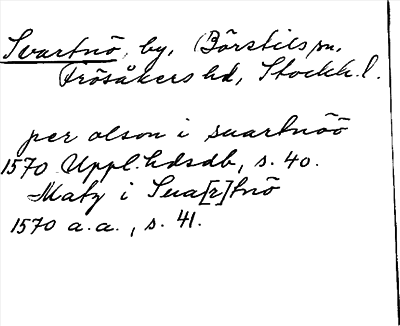 Svartnö, by, Börstils sn,
Frösåkers hd, Stockh. l.
per olson i suartnöö
1570 Uppl.hdsdb, s. 40.
Matz i Sua[r]tnö
1570 a.a., s. 41.